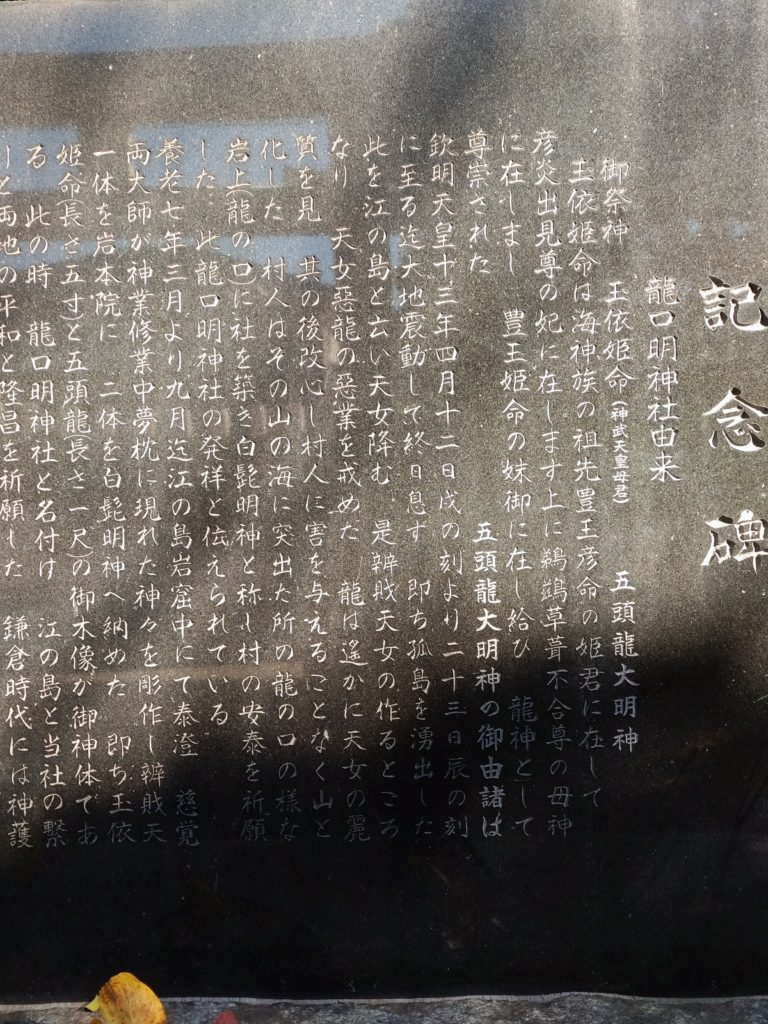 記念碑
龍口明神社由来
御祭神　玉依姫命（神武天皇母君）　五頭龍大明神
玉依姫命は海神族の祖先豊玉彦命の姫君に在して
彦炎出見尊の妃に在します上に鵜鷀草葺不合尊の母神
に在しまし　豊玉姫命の妹御に在し給ひ　龍神として
尊崇された　五頭龍大明神の御由諸は
欽明天皇十三年四月十二日戌の刻より二十三日辰の刻
に至る迄大地震動して終日息ず　即ち孤島を湧出した
此を江の島と云い天女降む　是辨戝天女の作るところ
なり　天女惡龍の惡業を戒めた　龍は遙かに天女の麗
質を見　其の後改心し村人に害を与えることなく山と
化した　村人はその山の海に突出た所の龍の口の様な
岩上（龍の口）に社を築き白髭明神と称し村の安泰を祈願
した　此龍口明神社の発祥と伝えられている
養老七年三月より九月迄江の島岩窟中にて泰澄　慈覚
両大師が神業修業中夢枕に現れた神々を彫作し辨戝天
一体を岩本院に　二体を白髭明神へ納めた　即ち玉依
姫命（長さ五寸）と五頭龍（長さ一尺）の御木像が御神体であ
る　此の時　龍口明神社と名付け　江の島と当社の繋
しと両地の平和と隆昌を祈願した　鎌倉時代には神護